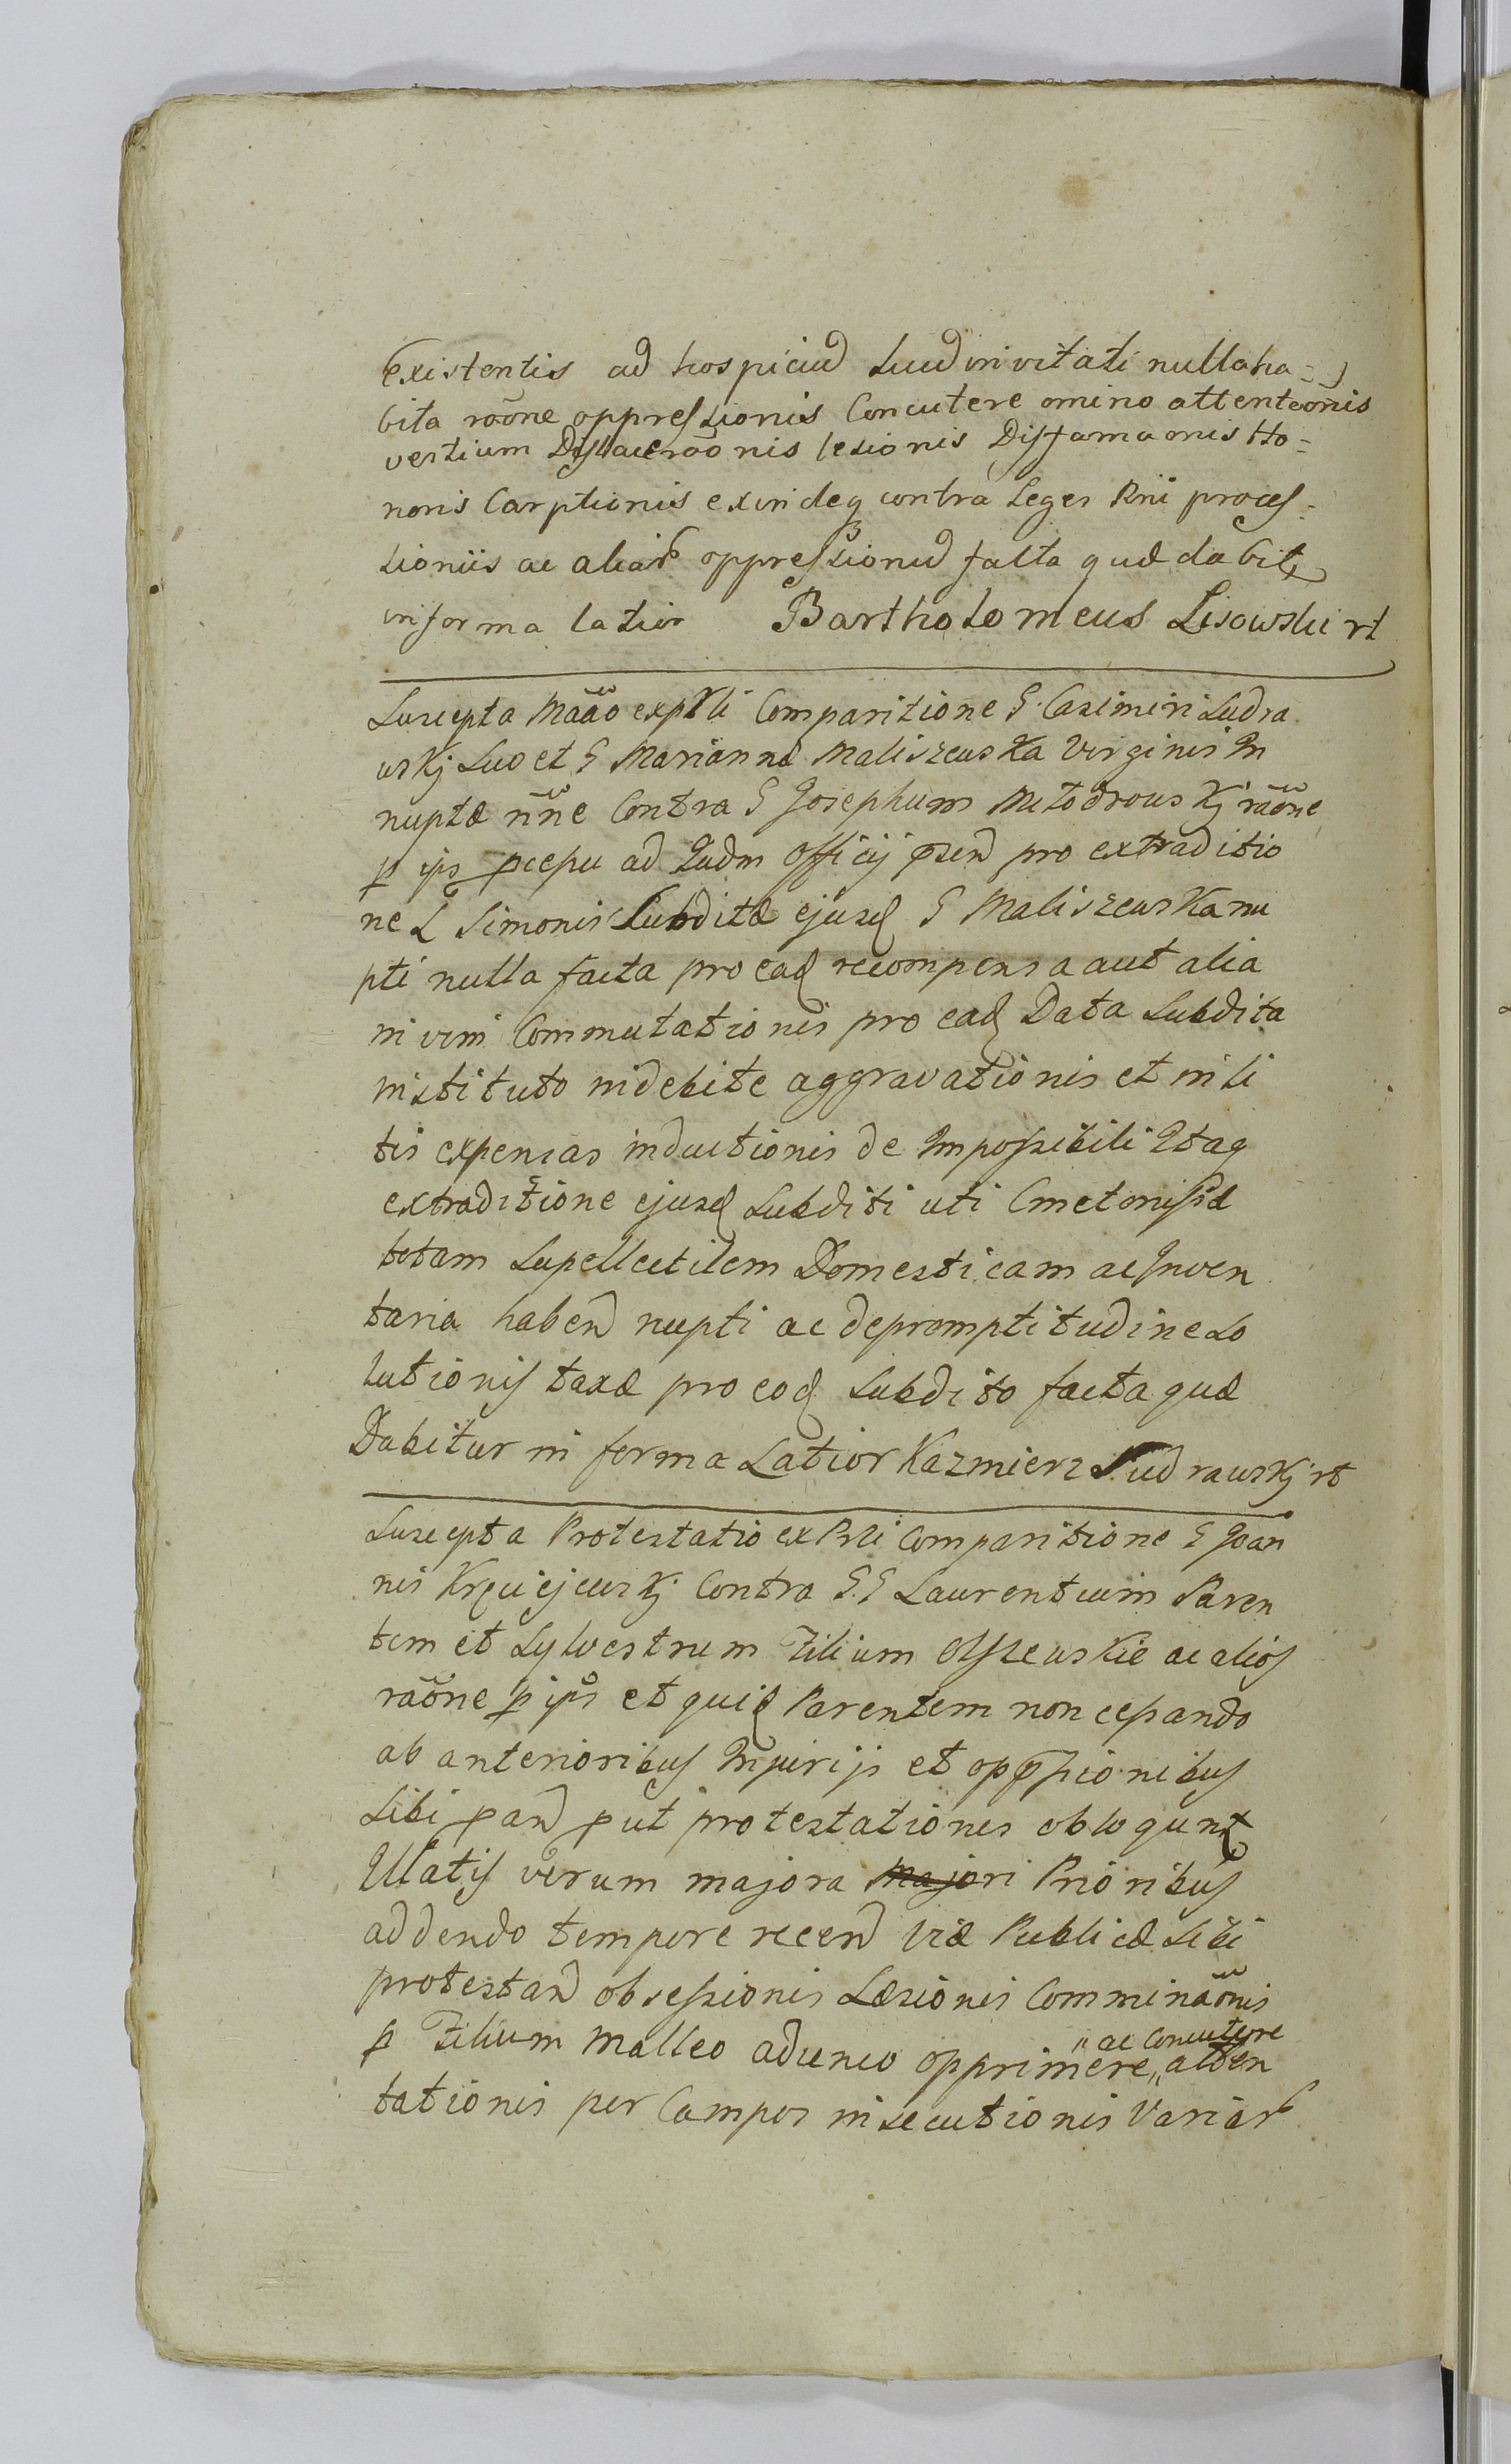 existentis ad hospiciu̅d suud invitati nulla ha=
bita rãone oppressionis Concutere omino attenteonis
vestium Dislaceraõnis lesionis Diffamaonis Ho=
noris Carptionis exindeq contra Leges Rni proces=
sioniis ac aliar oppressionud facta quæ dabit
in forma latior Bartholomeus Lisowski rt
Suscepta Mãão ex prli Comparitione G. Casimiri Sudra
wskj Suo et G Mariannæ Maliszewska Virginis In
nuptæ nñe Contra G Josephum Modrowskj rãone
p ips pcepu ad Judm Officij psend pro extraditio
ne L Simonis Subditæ ejusd G Maliszewska nu
pti nulla facta pro ead recompensa aut alia
in vim Commutationis pro ead Data Subdita
instituto indebite aggravationis et in li
tis expensas inductionis de Impossibili Itaq
extraditione ejusd Subditi uti Cmetonis
totam Supellectilem Domesticam ac Inven
taria habend nupti ac de promptitudine so
lutionis taxæ pro eod Subdito facta quæ
Dabitur in forma Latior Kazmierz Sudrawskj rt
Suscepta Protestatio ex Prli Comparitione G Joan
nis contra G.G Laurentium Paren
tem et Sylvestrum Filium Olszewskie ac alios
rãone p ips et quid Parentem non cessando
ab anterioribus Injurijs et oppssionibus
Sibi pand put protestationes obloqunt
Illatis verum majora majori Prioribus
addendo tempore recend viæ Publicæ Sibi
protestand obsessionis Læsionis Comminãonis
p Filium Malleo adunco opprimere „ac Concutere„ atten
tationis per Campos insecutionis Variar